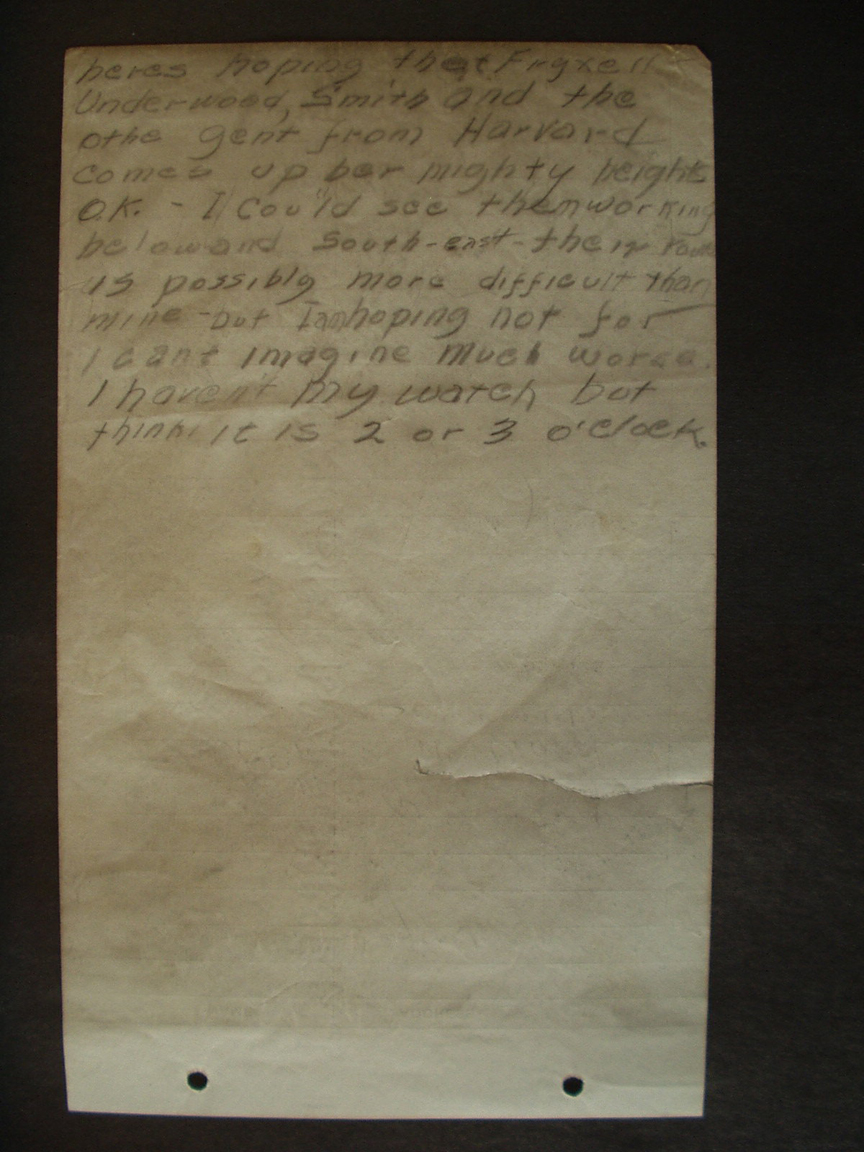 heres hoping that Fryxell
Underwood, Smith and the
othe gent from Harvard
comes up her mighty heights
O.K. - I Could see them working
below and South-east - their route
is possibly more difficult than
mine - but I am hoping not for
I cant imagine much worse.
I haven't my watch but
think it is 2 or 3 o'clock.